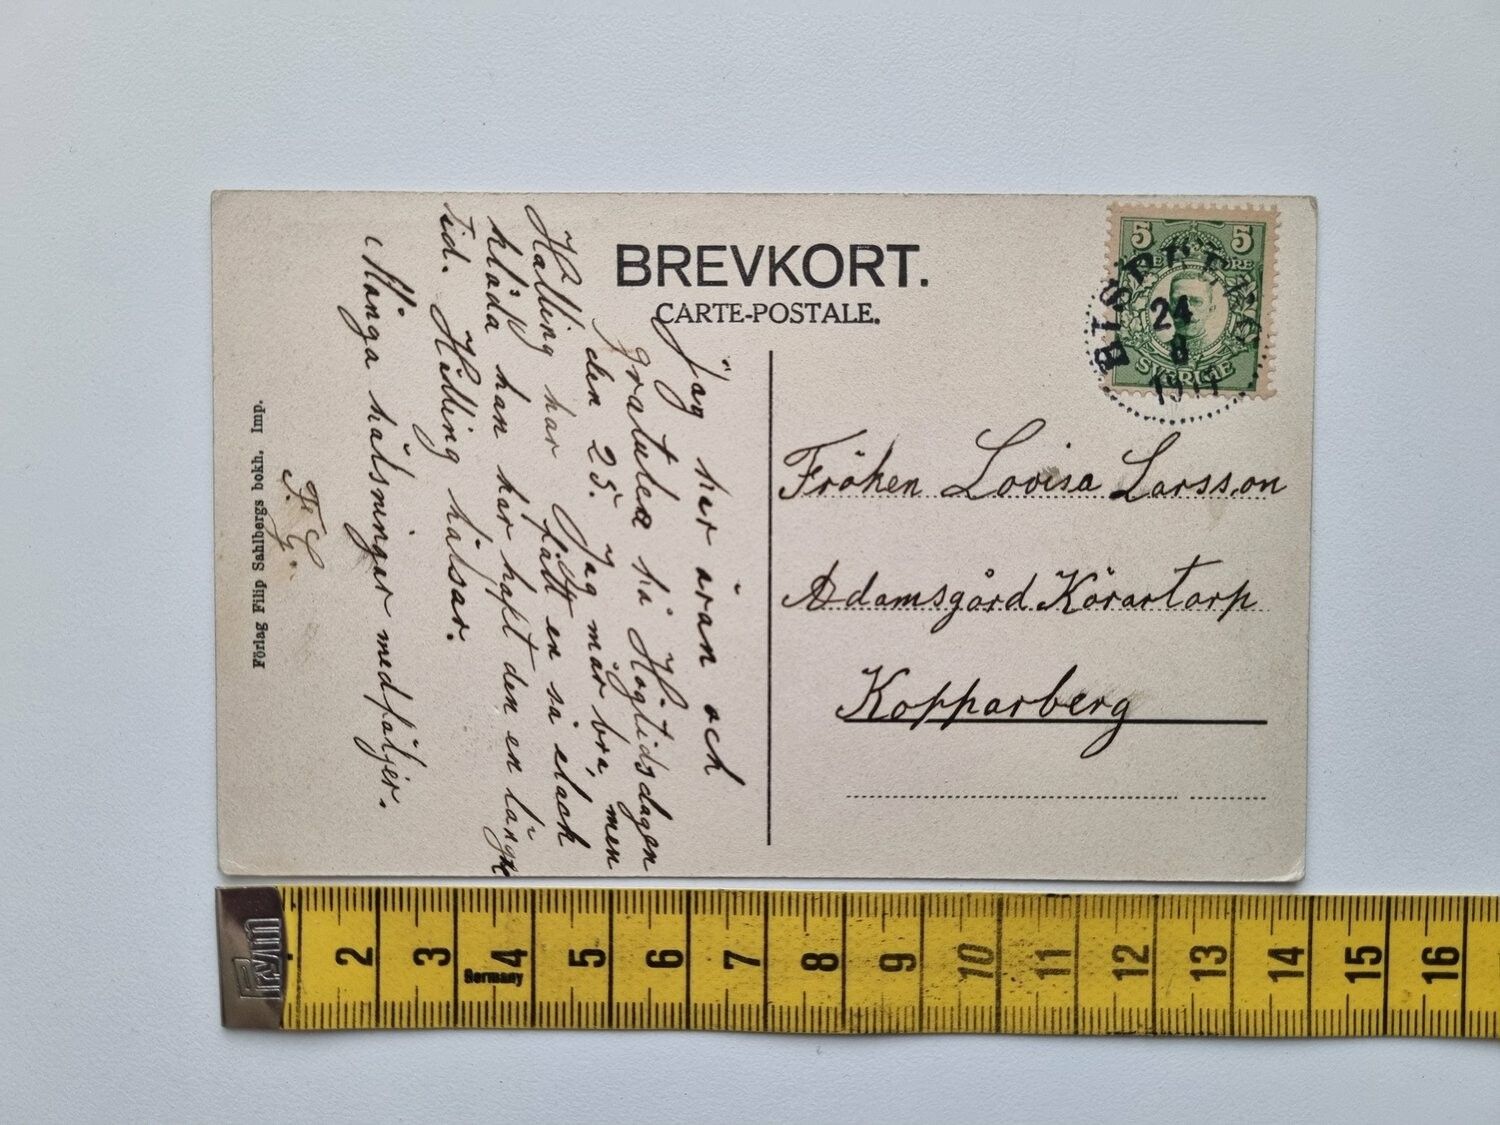 BREVKORT.
CARTE-POSTALE.
5 5
SVERIGE
BISPBERG
24
8
1911
Jag har äran och
gratulera på Högtidsdagen
den 25. Jag mår bra, men
Hilling har fått en så elack
klåda han har haft den en längre
tid. Hilling hälsar.
Många hälsningar medföljer.
F. G.
Fröken Lovisa Larsson
Adamsgård Körartorp
Kopparberg
Förlag Filip Sahlbergs bokh. Imp.
Prym
2 3 4 5 6 7 8 9 10 11 12 13 14 15 16
Germany